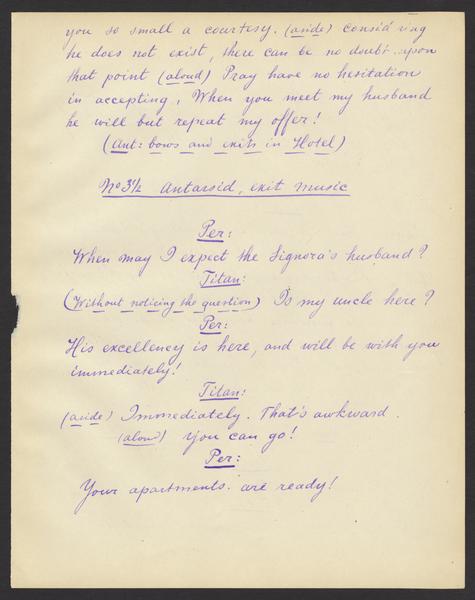 you so small a courtesy. (aside) consid'ring
he does not exist, there can be no doubt upon
that point (aloud) Pray have no hesitation
in accepting, When you meet my husband
he will but repeat my offer!
(Ant: bows and exits in Hotel)
No 3½ Antarsid, exit music
Per:
When may I expect the Signora's husband?
Titan:
(Without noticing the question) Is my uncle here?
Per:
His excellency is here, and will be with you
immediately!
Titan:
(aside) Immediately. That's awkward.
(aloud) You can go!
Per:
Your apartments are ready!